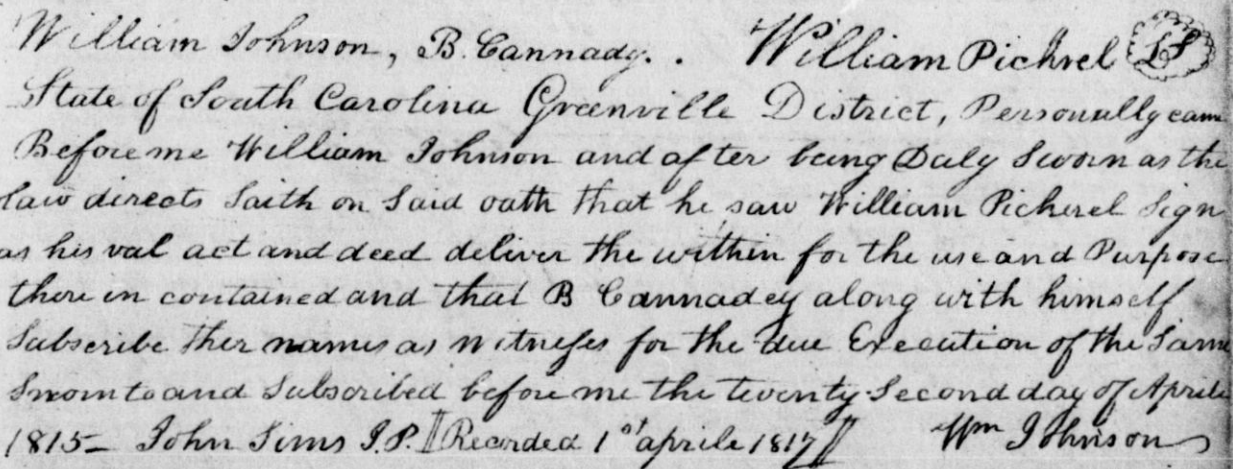 William Johnson, B. Cannady. . William Pickrel LS
State of South Carolina Greenville District, Personally came
Before me William Johnson and after being Duly Sworn as the
law directs Saith on Said oath that he saw William Pickerel Sign
as his val act and deed deliver the within for the use and Purpose
there in contained and that B Cannadey along with himself
Subscribe ther names as Witnesses for the due Execution of the Same
Sworn to and Subscribed before me the twenty Second day of Aprile
1815 – John Sims J.P. || Recorded 1st aprile 1817 || Wm Johnson